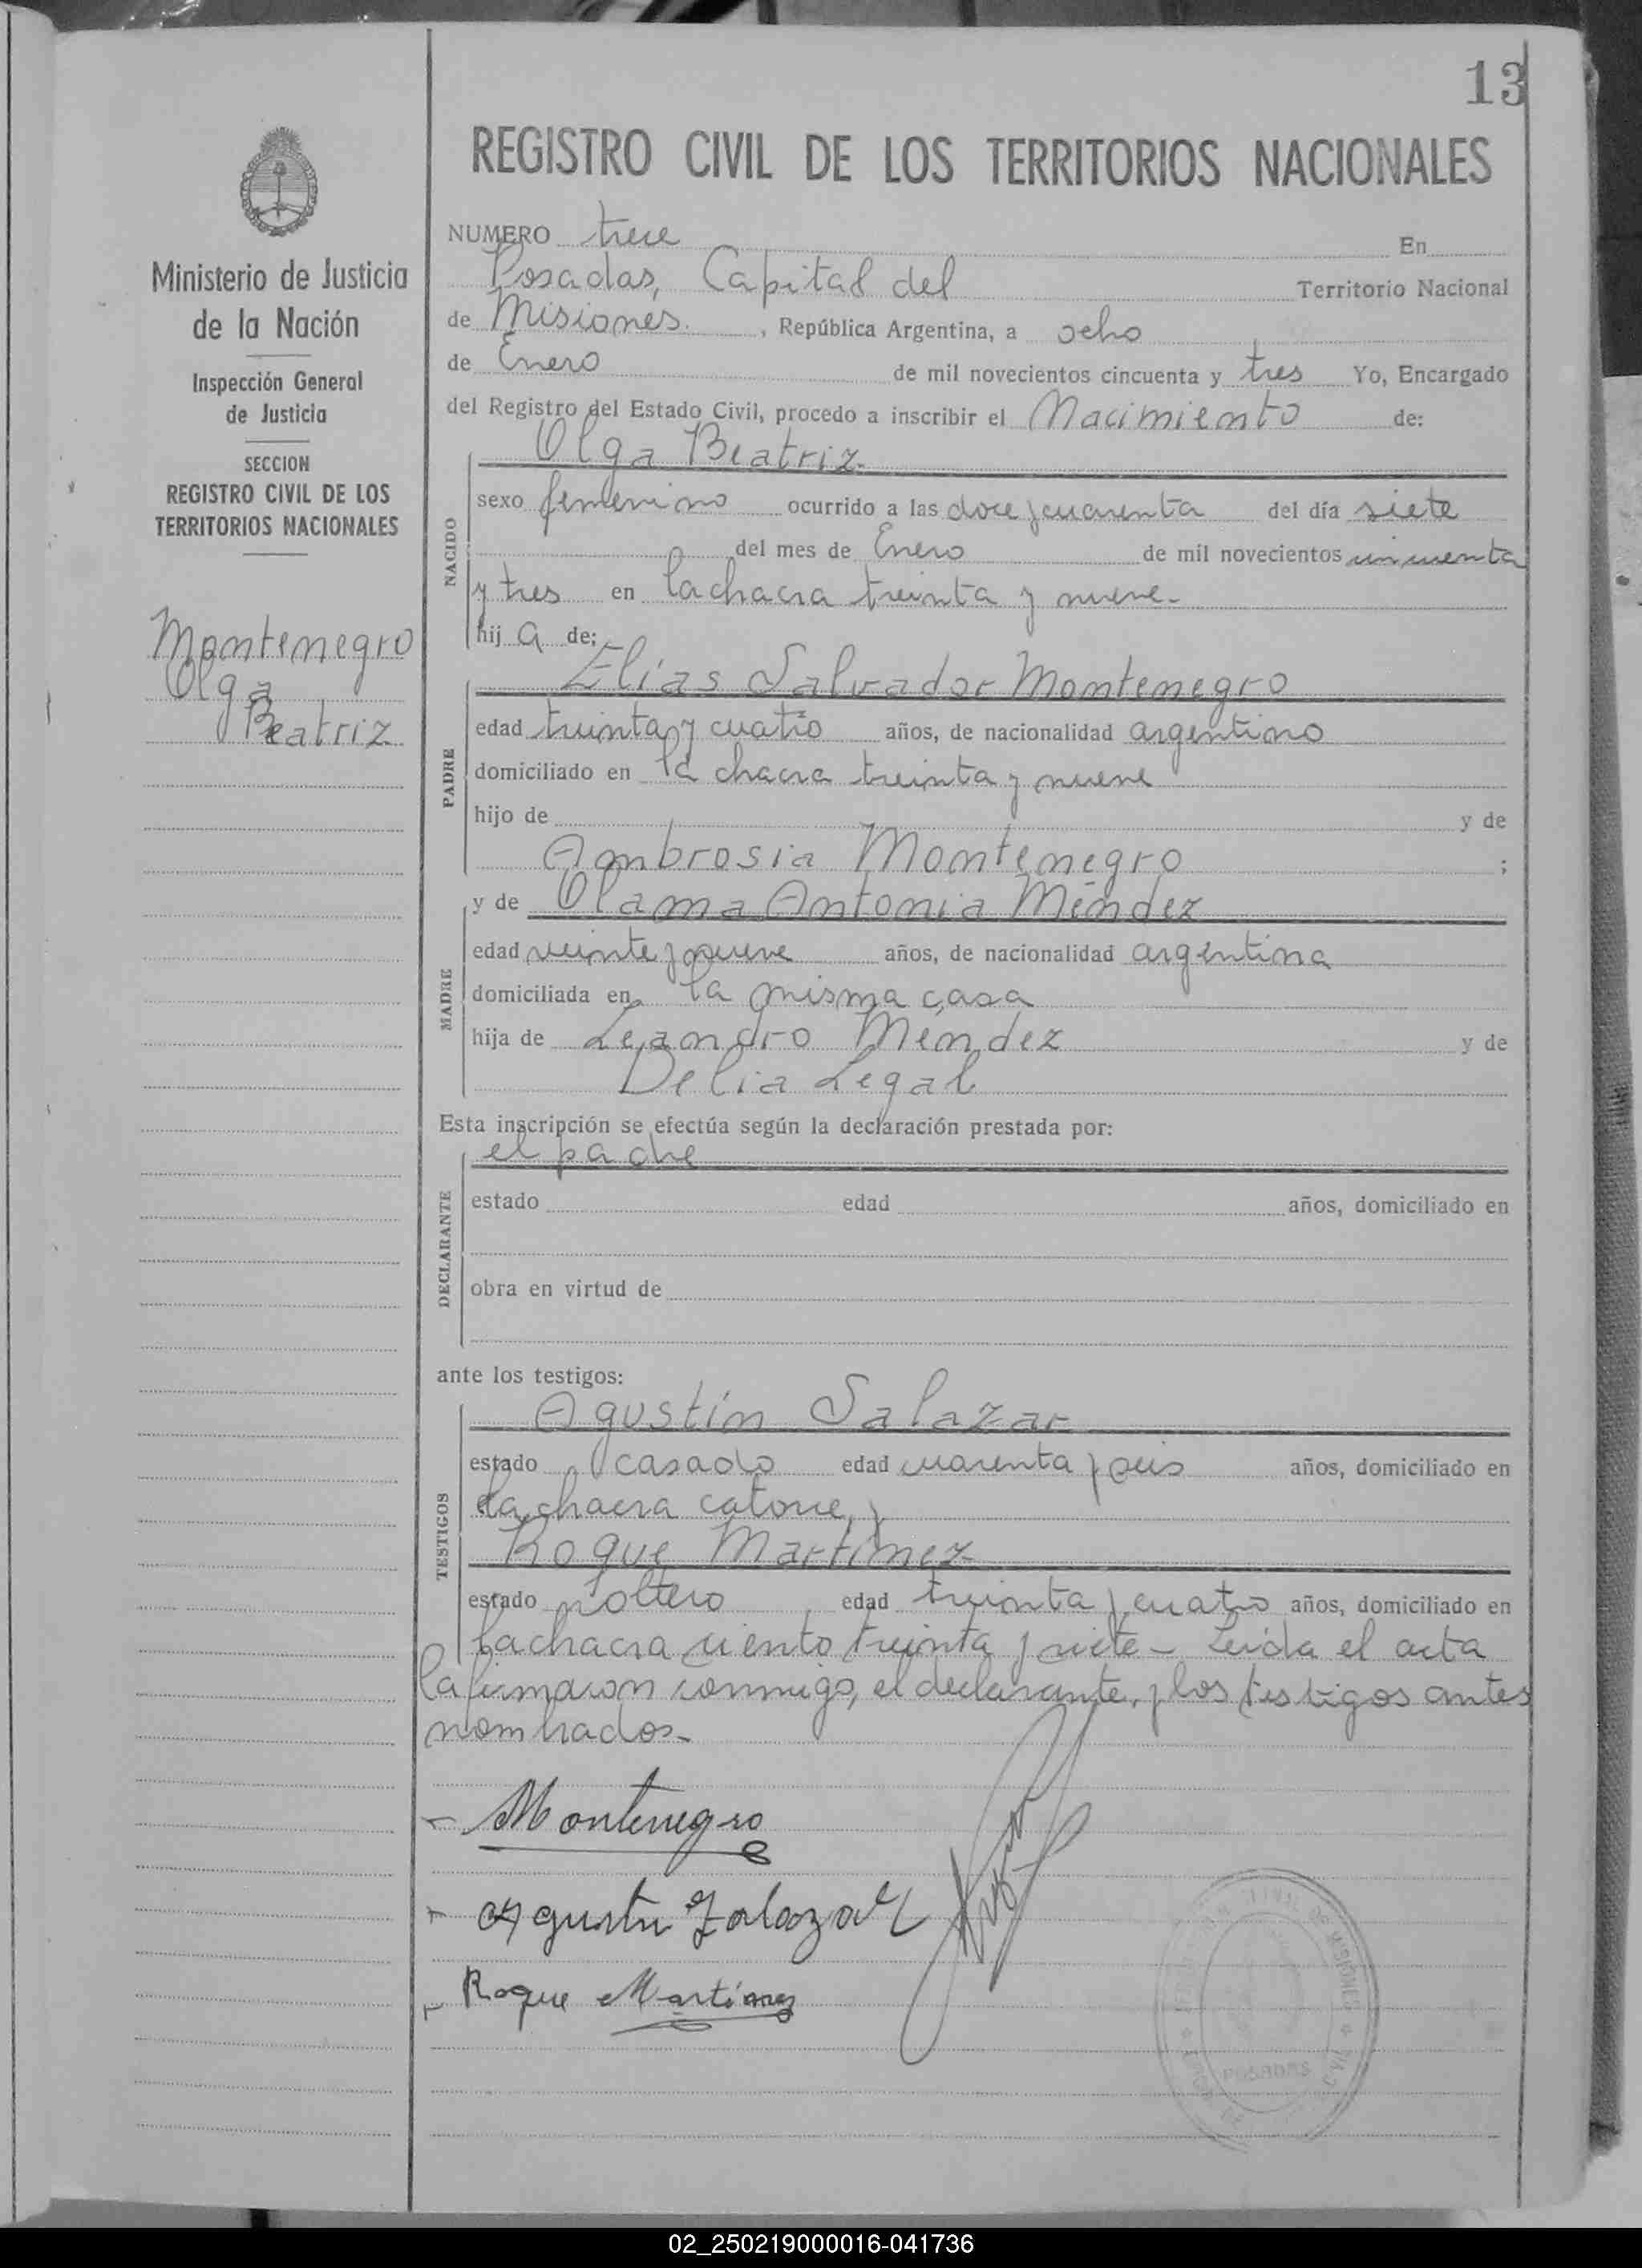 13
REGISTRO CIVIL DE LOS TERRITORIOS NACIONALES
Ministerio de Justicia
de la Nación
Inspección General
de Justicia
SECCION
REGISTRO CIVIL DE LOS
TERRITORIOS NACIONALES
Montenegro
Olga
Beatriz
NUMERO trece En
Posadas, Capital del Territorio Nacional
de Misiones. , República Argentina, a ocho
de Enero de mil novecientos cincuenta y tres Yo, Encargado
del Registro del Estado Civil, procedo a inscribir el Nacimiento de:
Olga Beatriz
NACIDO
sexo femenino ocurrido a las doce y cuarenta del día siete
del mes de Enero de mil novecientos cincuenta
y tres en la chacra treinta y nueve-
hij a de:
Elías Salvador Montenegro
PADRE
edad treinta y cuatro años, de nacionalidad argentino
domiciliado en la chacra treinta y nueve
hijo de y de
Ambrosia Montenegro ;
y de Olama Antonia Méndez
MADRE
edad veinte y nueve años, de nacionalidad argentina
domiciliada en la misma casa
hija de Leandro Méndez y de
Delia Legal
Esta inscripción se efectúa según la declaración prestada por:
el padre
DECLARANTE
estado edad años, domiciliado en
obra en virtud de
ante los testigos:
Agustín Salazar
TESTIGOS
estado casado edad cuarenta y seis años, domiciliado en
la chacra catorce, y
Roque Martínez
estado soltero edad treinta y cuatro años, domiciliado en
la chacra ciento treinta y siete- Leída el acta
la firmaron conmigo, el declarante, y los testigos antes
nombrados-
Montenegro
Agustin Zalazar
Roque Martínez
MISIONES
POSADAS
02_250219000016-041736